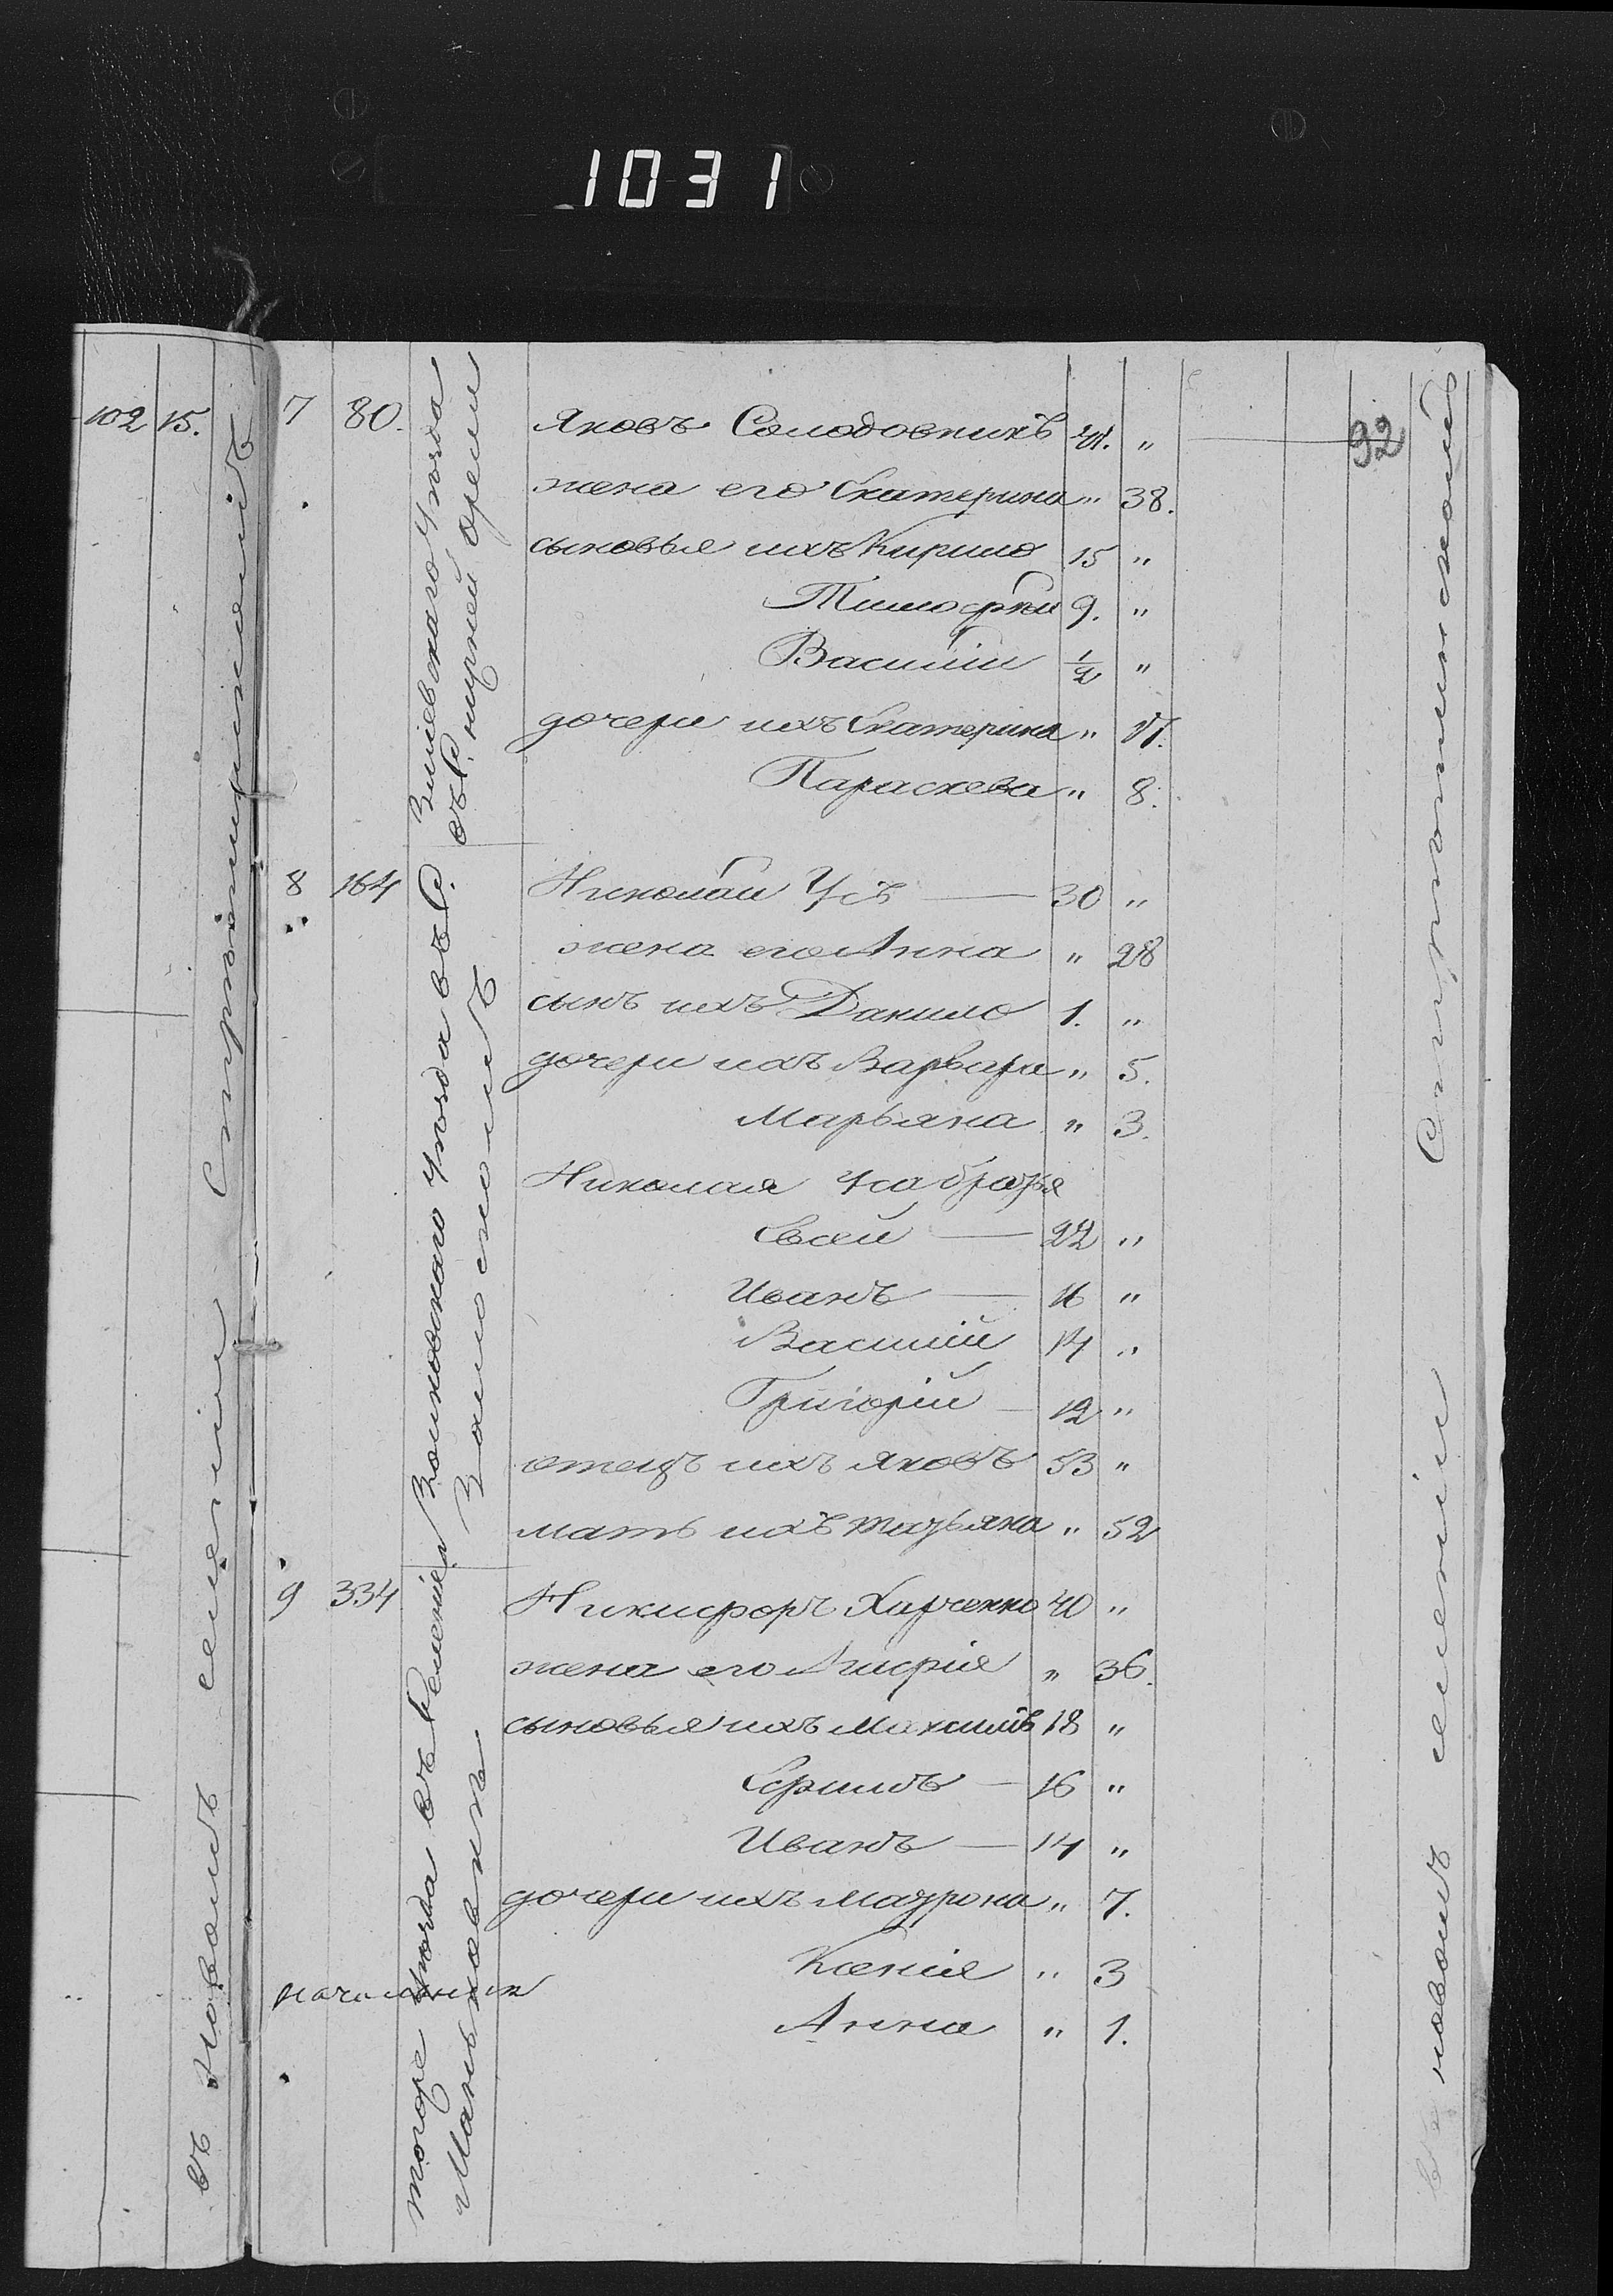 1031
102 15.
въ новомъ селеніи
92
7 80. Яковъ Солодовникъ 41. "
жена его Екатерина " 38.
сыновья ихъ Кирило 15 "
Тимофей 9. "
Василій 1/2 "
дочери ихъ Екатерина " 17.
Параскева " 8.
Зміевскаго Уѣзда
8 164 Николай Усъ — 30 "
жена его Анна " 28
сынъ ихъ Данило 1. "
дочери ихъ Варвара " 5.
Марьяна " 3.
Николая Уса братья
Евсей — 22 "
Иванъ — 16 "
Василій 14 "
Григорій — 12 "
отецъ ихъ Яковъ 53 "
мать ихъ Татьяна " 52
Уѣзда въ С.
9 334 Никифоръ Харченко 40 "
жена его Агафія " 36.
сыновья ихъ Максимъ 18 "
Ефимъ — 16 "
Иванъ — 14 "
дочери ихъ Матрона " 7.
Ксенія " 3
Анна " 1.
тогоже Уѣзда въ Селеніи
Маньковкѣ
новомъ селеніи